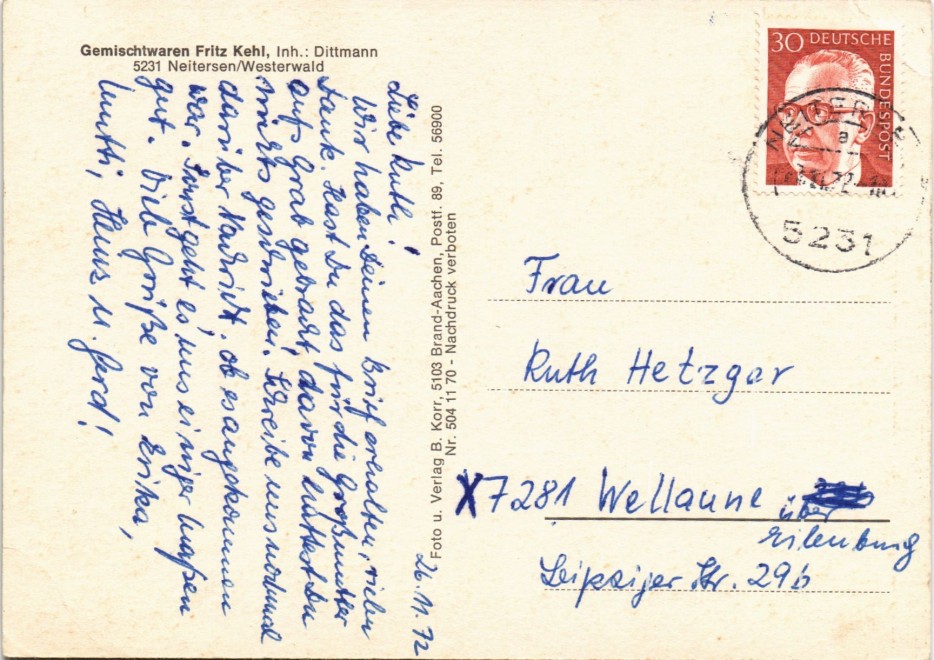 Gemischtwaren Fritz Kehl, Inh.: Dittmann
5231 Neitersen/Westerwald
26.11.72
Liebe Ruth!
Wir haben Deinen Brief erhalten, vielen
Dank. Hast Du das für die Großmutter
aufs Grab gebracht, davon hattest Du
nichts geschrieben. Schreibe uns nochmal
darüber Nachricht, ob es angekommen
war. Sonst geht es uns einiger maßen
gut. Viele Grüße von Erika,
Mutti, Hans u. Gerd!
Foto u. Verlag B. Korr, 5103 Brand-Aachen, Postf. 89, Tel. 56900
Nr. 504 11 70 - Nachdruck verboten
30 DEUTSCHE BUNDESPOST
a
5231
Frau
Ruth Hetzgar
X7281 Wellaune
über
Eilenburg
Leipziger Str. 29b